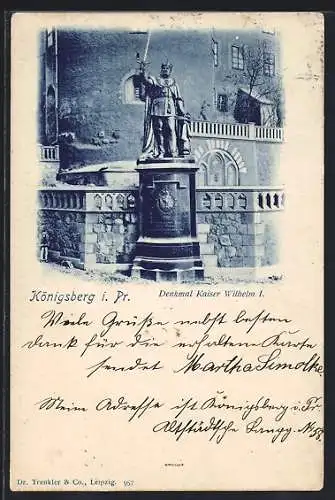 Königsberg i. Pr.
Denkmal Kaiser Wilhelm I.
Viele Grüße nebst besten
dank für die erhaltene Karte
sendet Martha Lemolke
Meine Adresse ist Königsberg i. Pr.
Altstädtsche Langg. No 53.
Dr. Trenkler & Co., Leipzig. 957